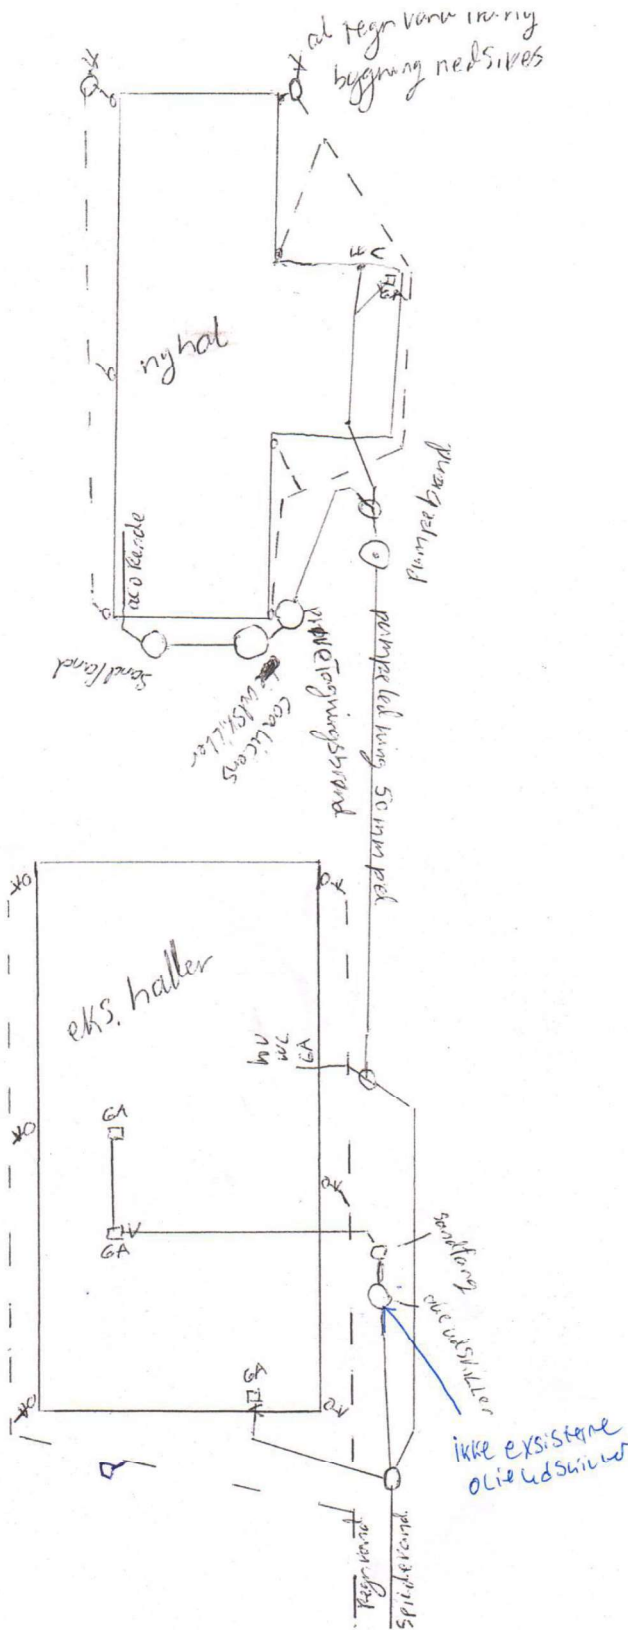 al regnvand
bygning nedsives
ny hal
aco Rende
sandfang
coalicens
udskiller
pumpebrønd
pumpeledning 50 mm pel
eks. haller
hv
wc
GA
GA
GA
GA
sandfang
olieudskiller
ikke exsisterne
olieudskiller
Regnvand
Spildevand